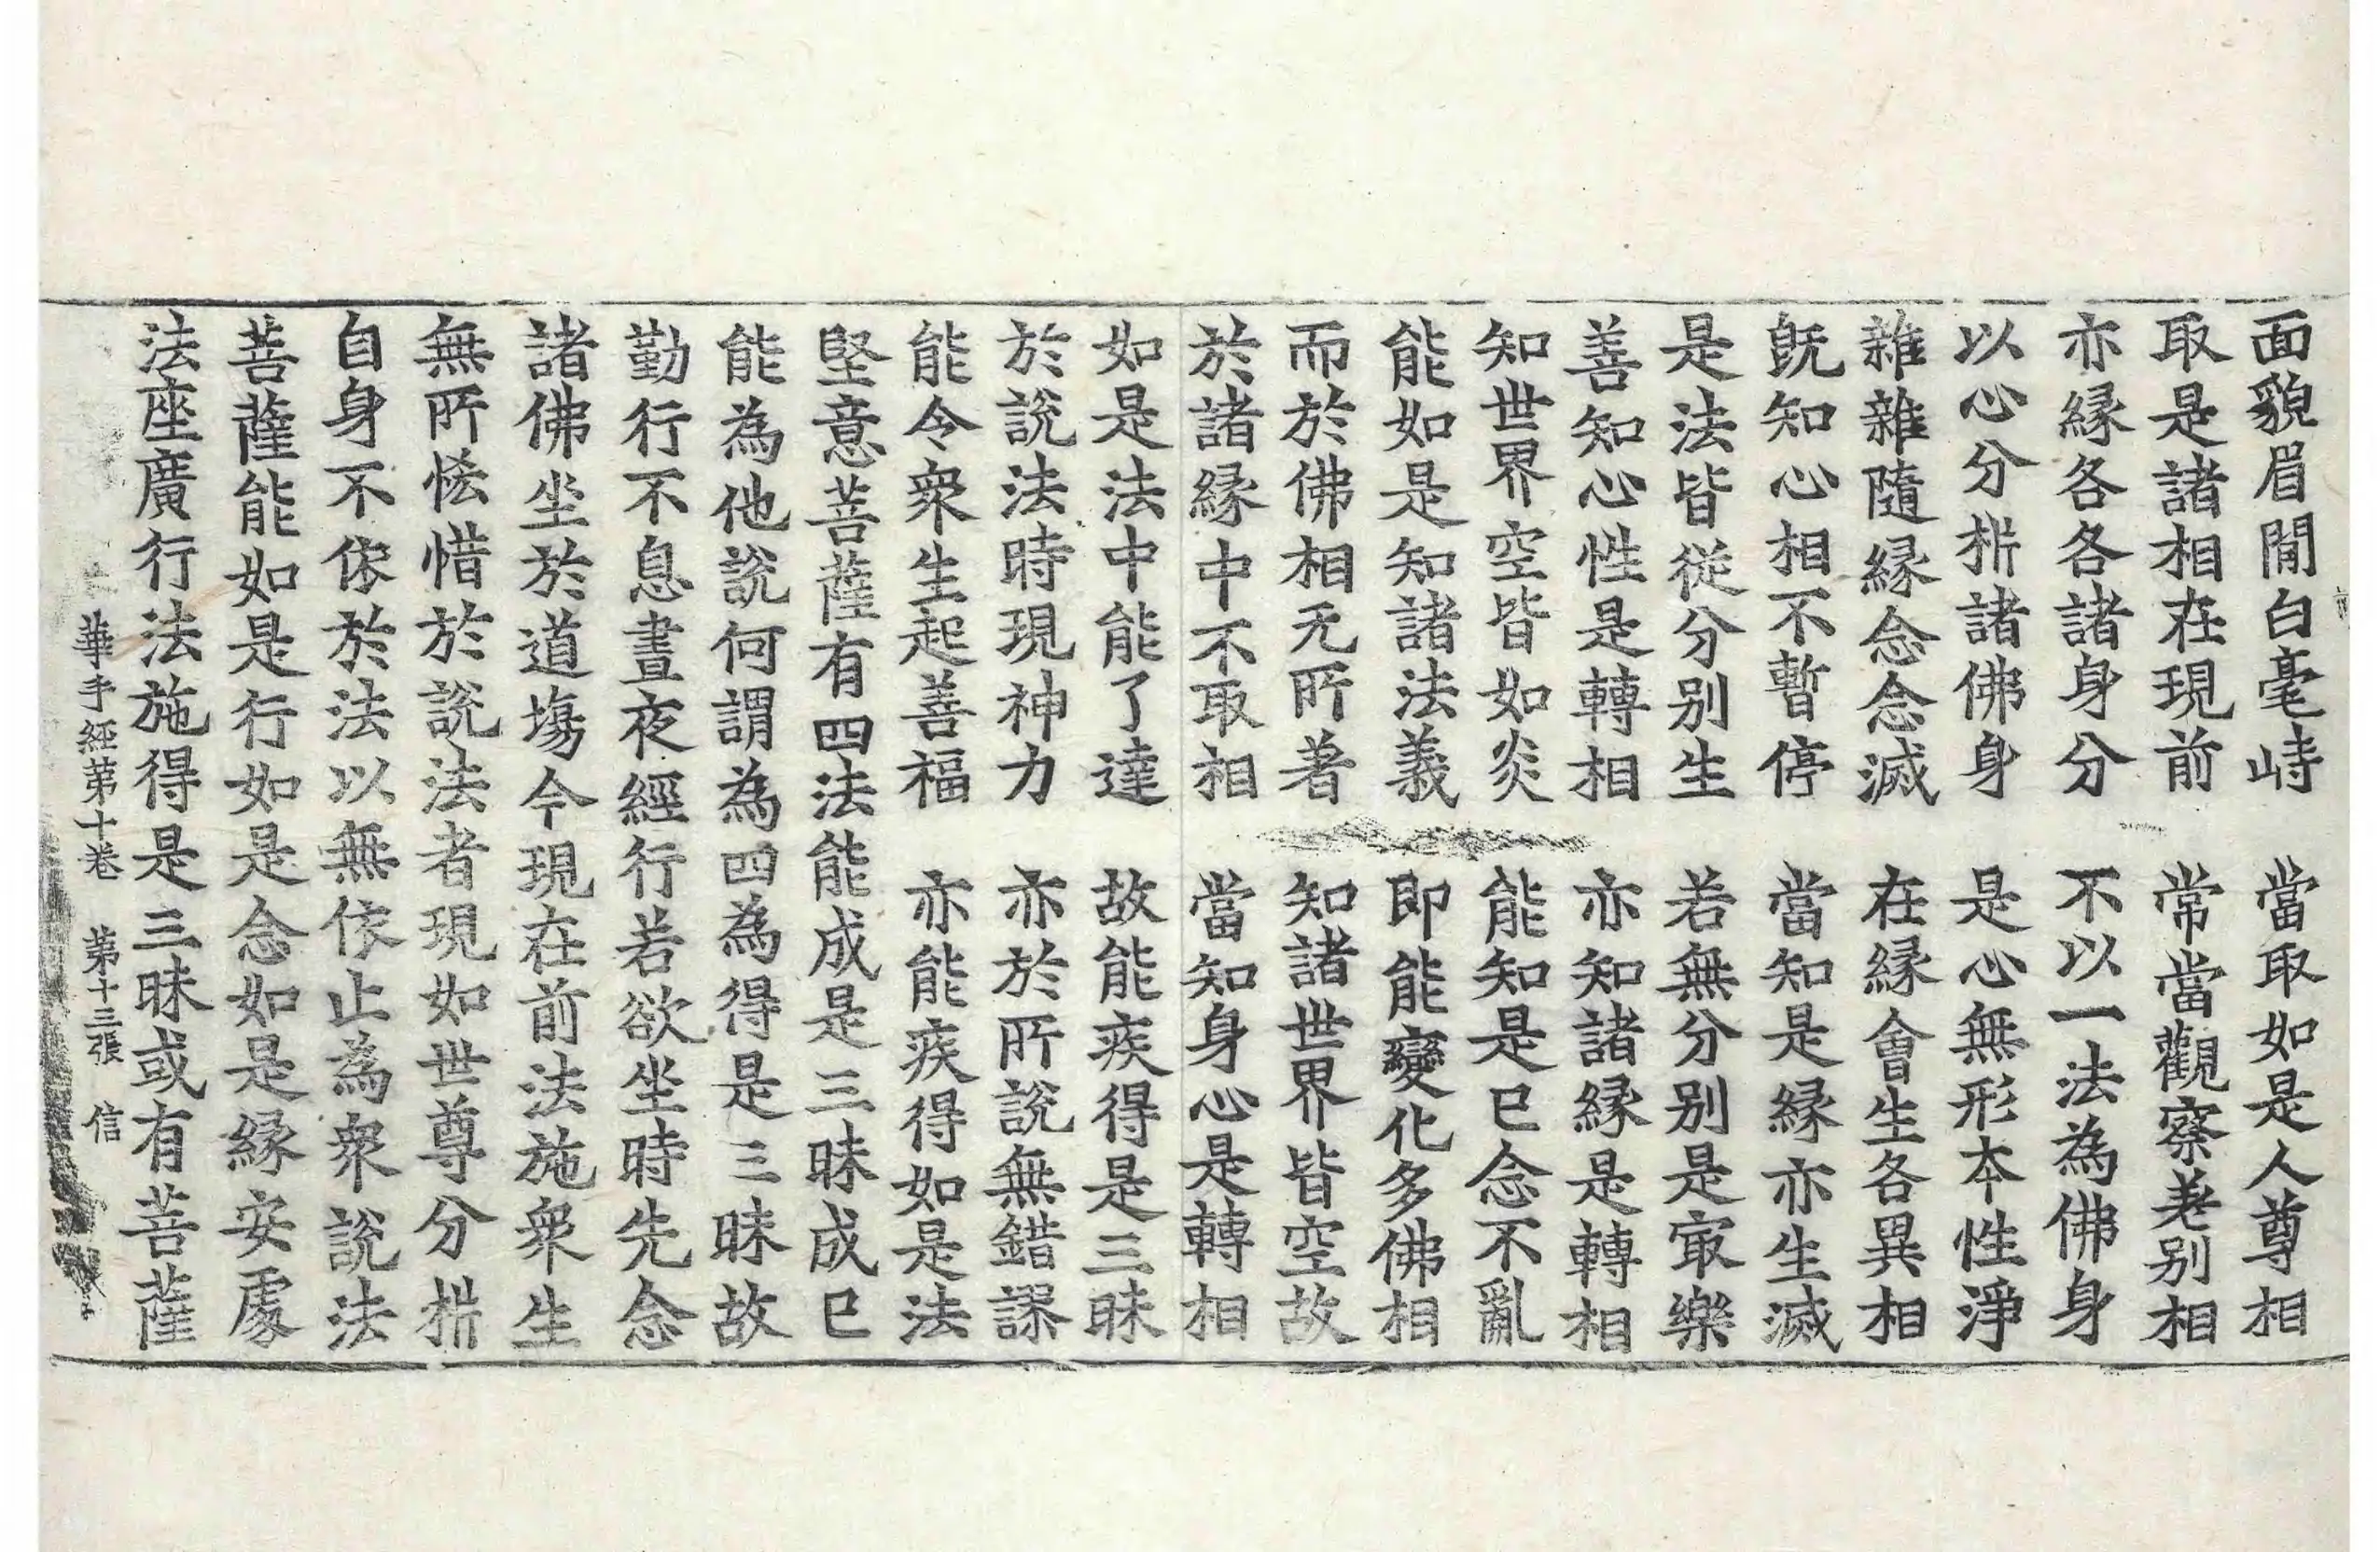 面貌眉間白毫峙　當取如是人尊相
取是諸相在現前　常當觀察差别相
亦縁各各諸身分　不以一法為佛身
以心分枡諸佛身　是心無形本性淨
雜雜隨縁念念滅　在縁會生各異相
旣知心相不暫停　當知是縁亦生滅
是法皆從分别生　若無分别是㝡樂
善知心性是轉相　亦知諸縁是轉相
知世界空皆如炎　能知是已念不亂
能如是知諸法義　即能變化多佛相
而於佛相无所著　知諸世界皆空故
於諸縁中不取相　當知身心是轉相
如是法中能了達　故能疾得是三昧
於說法時現神力　亦於所說無錯謬
能令衆生起善福　亦能疾得如是法
堅意菩薩有四法能成是三昧成已
能為他說何謂為四為得是三昧故
勤行不息晝夜經行若欲坐時先念
諸佛坐於道場今現在前法施衆生
無所恡惜於說法者現如世尊分枡
自身不依於法以無依止為衆說法
菩薩能如是行如是念如是縁安處
法座廣行法施得是三昧或有菩薩
華手經第十卷　第十三張　信